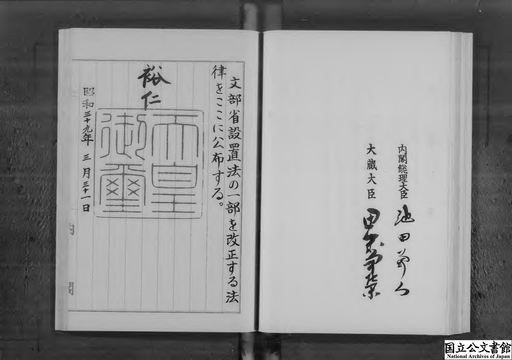 文部省設置法の一部を改正する法
律をここに公布する。
裕仁
天皇
御璽
昭和三十九年三月三十一日
内閣総理大臣 池田勇人
大蔵大臣 田中角榮
国立公文書館
National Archives of Japan